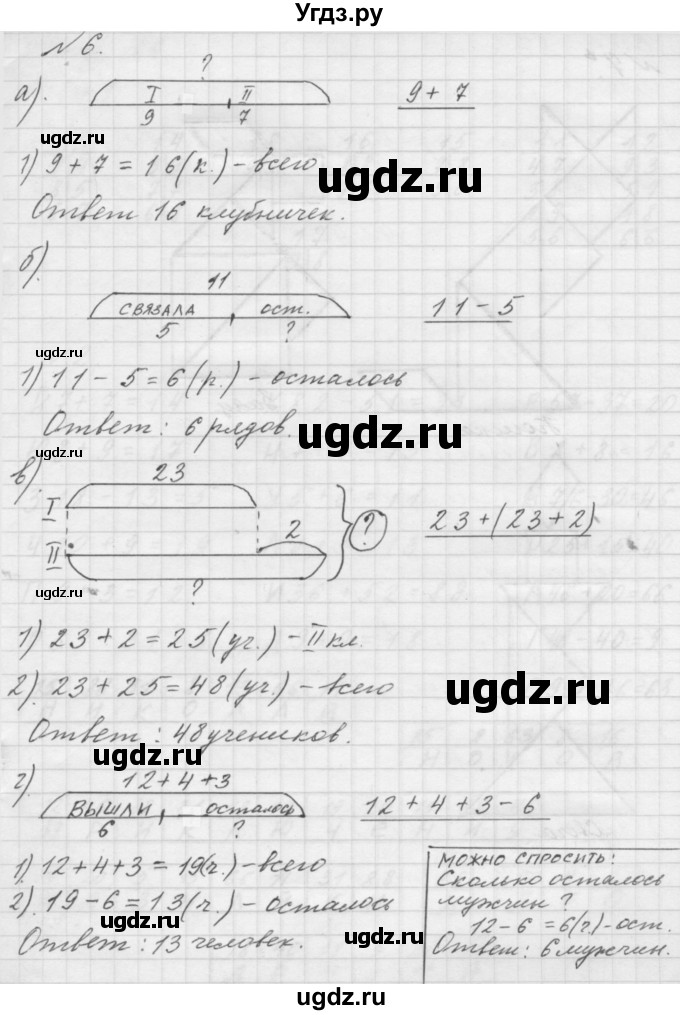 Угдз.ру
№ 6.
?
а). I II 9 + 7
9 7
ugdz.ru
1) 9 + 7 = 16 (к.) – всего
ugdz.ru
Ответ 16 клубничек.
б).
11
СВЯЗАЛА ост. 11 – 5
5 ?
ugdz.ru
1) 11 – 5 = 6 (р.) – осталось
Ответ: 6 рядов.
ugdz.ru
ugdz.ru
в)
23
I
2 ? 23 + (23 + 2)
II
ugdz.ru
?
1) 23 + 2 = 25 (уч.) – II кл.
2). 23 + 25 = 48 (уч.) – всего
ugdz.ru
Ответ: 48 учеников.
ugdz.ru
г). 12 + 4 + 3
ВЫШЛИ осталось 12 + 4 + 3 – 6
6 ?
1). 12 + 4 + 3 = 19 (ч.) – всего
2). 19 – 6 = 13 (ч.) – осталось
Ответ: 13 человек.
МОЖНО СПРОСИТЬ:
Сколько осталось
мужчин?
12 – 6 = 6 (ч.) – ост.
Ответ: 6 мужчин.
ugdz.ru
ugdz.ru